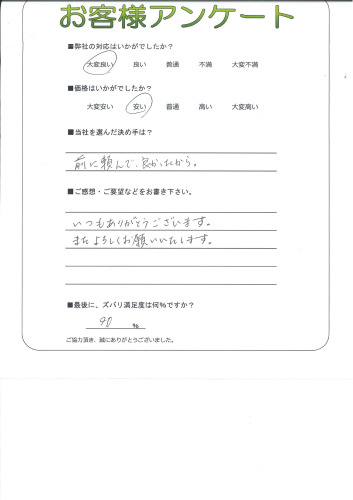 お客様アンケート
■弊社の対応はいかがでしたか？
大変良い 良い 普通 不満 大変不満
■価格はいかがでしたか？
大変安い 安い 普通 高い 大変高い
■当社を選んだ決め手は？
前に頼んで、良かったから。
■ご感想・ご要望などをお書き下さい。
いつもありがとうございます。
またよろしくお願いいたします。
■最後に、ズバリ満足度は何%ですか？
90 %
ご協力頂き、誠にありがとうございました。